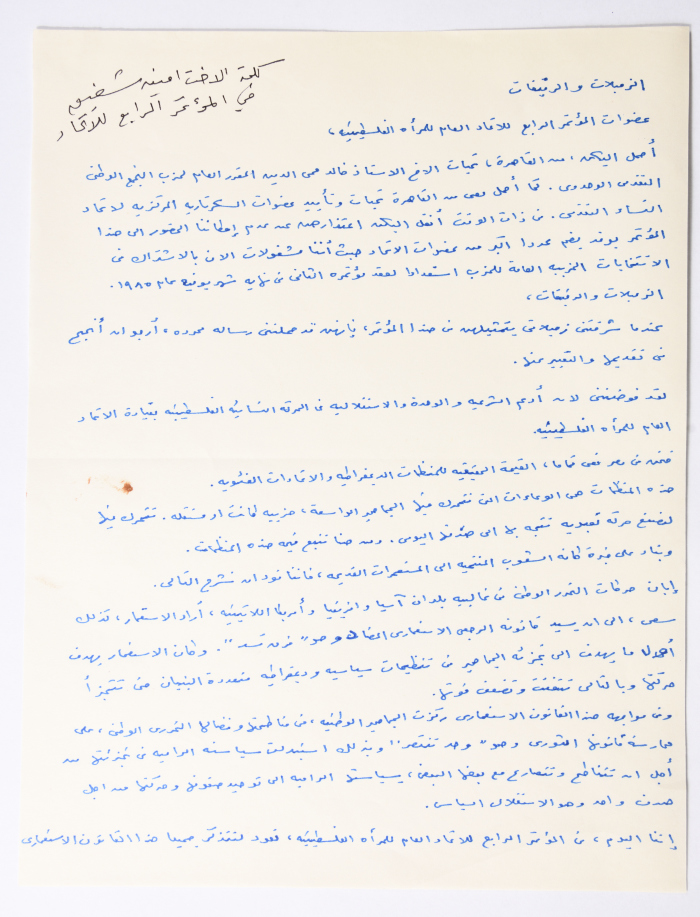 كلمة الاخت امينه شفيق
في المؤتمر الرابع للاتحاد
الزميلات والرفيقات
عضوات المؤتمر الرابع للاتحاد العام للمرأه الفلسطينيه،
أحمل اليكن، من القاهرة، تحيات الاخ الاستاذ خالد محى الدين المقرر العام لحزب التجمع الوطنى
التقدمى الوحدوى. كما أحمل معى من القاهرة تحيات وتأييد عضوات السكرتاريه المركزيه لاتحاد
النساء التقدمى. فى ذات الوقت أنقل اليكن اعتذارهن عن عدم إمكاننا الحضور الى هذا
المؤتمر بوفد يضم عددا اكبر من عضوات الاتحاد حيث أننا مشغولات الان بالاشتراك فى
الانتخابات الحزبيه العامة للحزب استعدادا لعقد مؤتمره الثانى فى نهايه شهر يونيه عام ١٩٨٥.
الزميلات والرفيقات،
عندما شرفتنى زميلاتى بتمثيلهن فى هذا المؤتمر، فإنهن قد حملننى رساله محدده، أرجو ان أنجح
فى تقديمها والتعبير عنها.
لقد فوضننى لان أدعم الشرعيه والوحدة والاستقلاليه فى الحركة النسائيه الفلسطينيه بقيادة الاتحاد
العام للمرأه الفلسطينيه.
فنحن فى مصر نعى تماما، القيمة الحقيقيه للمنظمات الديمقراطيه والاتحادات الفئويه.
هذه المنظمات هى الوعاءات التى تتحرك فيها الجماهير الواسعة، حزبيه كانت او مستقله. تتحرك فيها
لتصنع حركة تعبويه تتجه بها الى هدفها اليومى. ومن هنا تنبع قيمه هذه المنظمات.
وبناء على خبرة كافة الشعوب المنتميه الى المستعمرات القديمه، فاننا نود ان نشرح التالى.
إبان حركات التحرر الوطنى فى غالبيه بلدان آسيا وافريقيا وأمريكا اللاتينيه، أراد الاستعمار، كذلك
سعى، الى ان يسيد قانونه الرجعى الاستعمارى وهو "فرق تسد". وكان الاستعمار يهدف
أول ما يهدف الى تجزئه الجماهير فى تنظيمات سياسيه وديمقراطيه متعددة البنيان حتى تتجزأ
حركتها وبالتالى تتفتت وتضعف قوتها.
وفى مواجهه هذا القانون الاستعمارى ركزت الجماهير الوطنيه، فى نضالها التحررى الوطنى، على
ممارسة قانونها الثورى وهو "وحد تنتصر" وبذلك استبدلت سياسته الراميه فى تجزئتها من
أجل ان تتناطح وتتصارع مع بعضها البعض، بسياستها الراميه الى توحيد صفوفها وحركتها من اجل
هدف واحد وهو الاستقلال السياسى.
إننا اليوم، فى المؤتمر الرابع للاتحاد العام للمرأه الفلسطينيه، نعود لنتذكر جميعا هذا القانون الاستعمارى